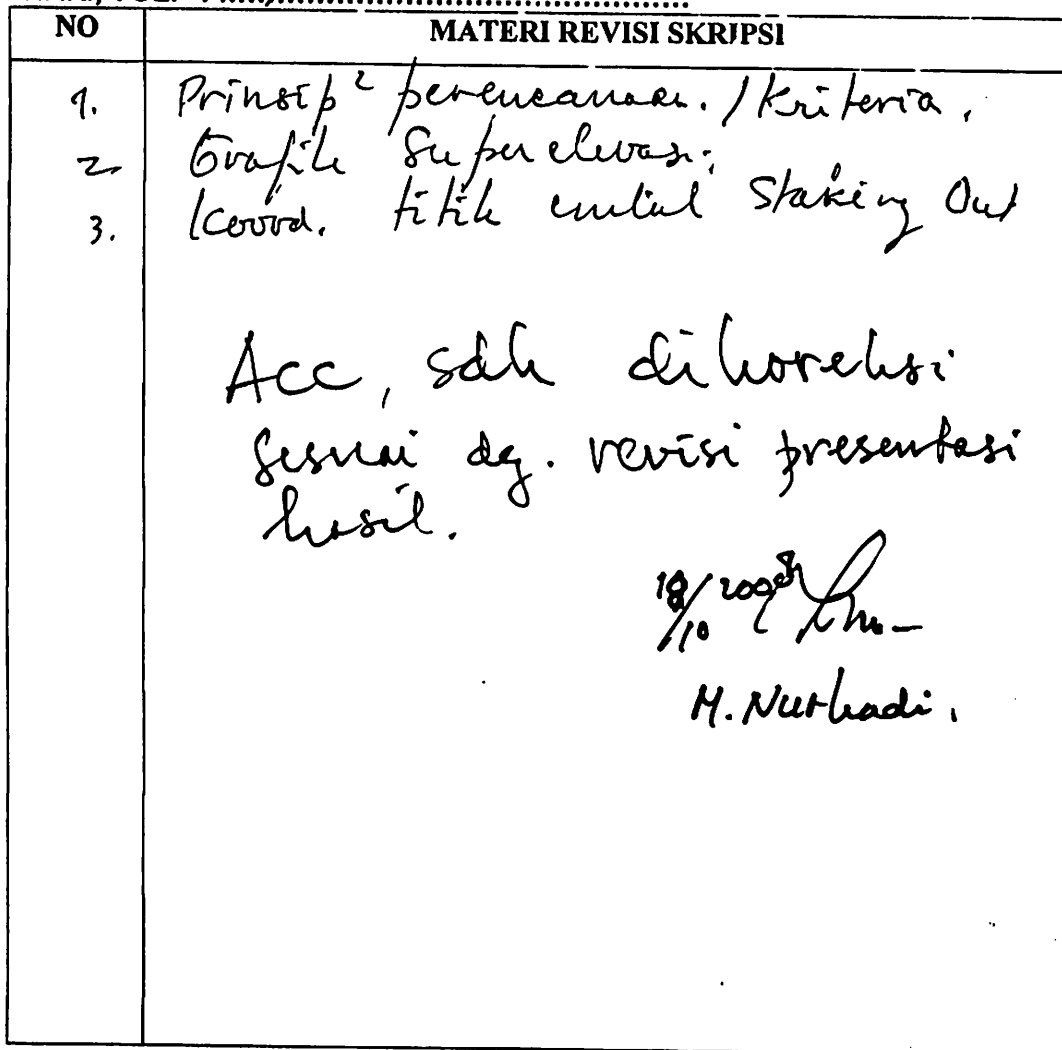 NO MATERI REVISI SKRIPSI
1. Prinsip² perencanaan. / Kriteria.
2 Grafik Superelevasi.
3. Koord. titik untuk Staking Out
Acc, sdh dikoreksi
sesuai dg. revisi presentasi
hasil.
18/10 2008
M. Nurhadi.